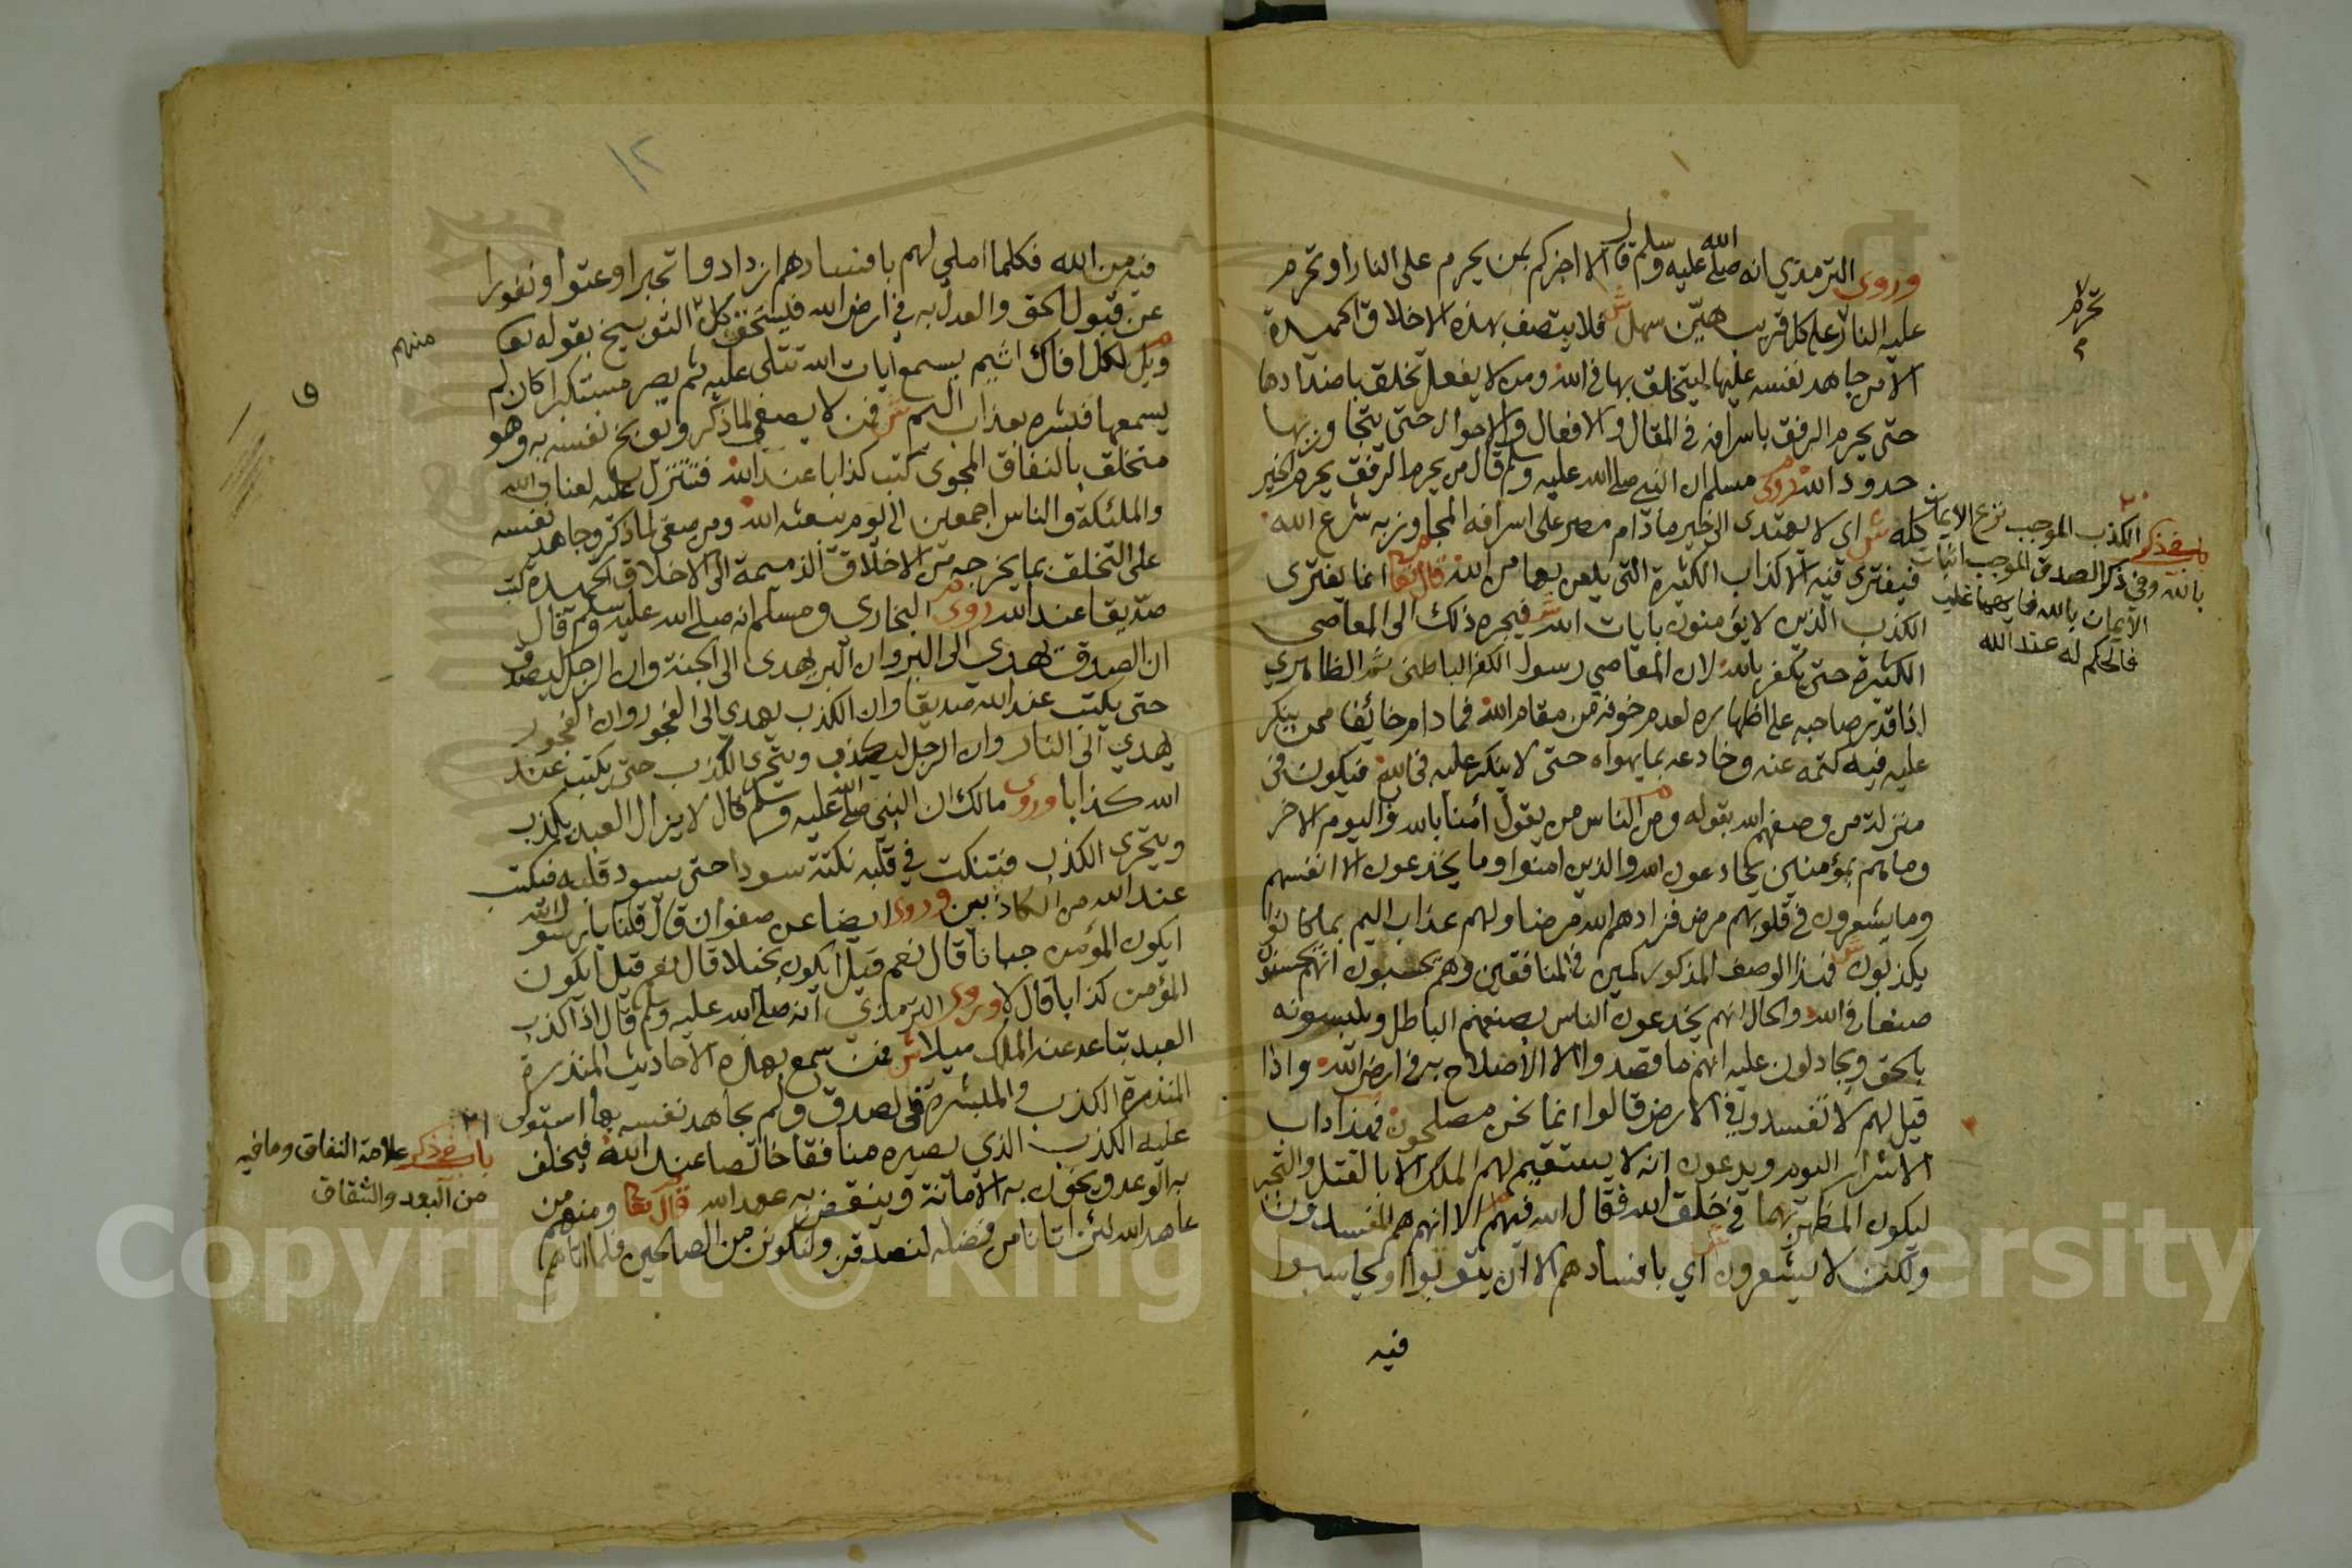 وروى الترمذي انه صلى الله عليه وسلم قال الا اخبركم بمن يحرم على النار او تحرم
عليه النار على كل قريب هيّن سهل ش فلا يتصف بهذه الاخلاق الحميدة
الا من جاهد نفسه عليها ليتخلق بها في الله ومن لا يفعل تخلق باضدادها
حتى يحرم الرفق باسرافه في المقال والافعال والاحوال حتى يتجاوز بها
حدود الله وروى مسلم ان النبي صلى الله عليه وسلم قال من يحرم الرفق يحرم الخير
كله ش اي لا يهتدى الى خير مادام مصر على اسرافه المجاوز به شرع الله
فيفترى فيه الاكذاب الكثيرة التي يلعن بها من الله قال تعا انما يفترى
الكذب الذين لا يؤمنون بآيات الله ش فيجره ذلك الى المعاصي
الكثيرة حتى يكفر بالله لان المعاصي رسول الكفر الباطني ثم الظاهري
اذا قدر صاحبه على اظهاره لعدم خوفه من مقام الله فمادام خائفا ممن ينكر
عليه فيه كتمه عنه وخادعه بما يهواه حتى لا ينكر عليه في الله فيكون في
منزلة من وصفهم الله بقوله ومن الناس من يقول أمنا بالله واليوم الاخر
وما هم بمؤمنين يخادعون الله والذين امنوا وما يخدعون الا انفسهم
وما يشعرون في قلوبهم مرض فزادهم الله مرضا ولهم عذاب اليم بما كانوا
يكذبون ش فهذا الوصف المذكور كمين في المنافقين وهم يحسبون انهم يحسنون
صنعا في الله والحال انهم يخدعون الناس بصنعهم الباطل ويلبسونه
بالحق ويجادلون عليه انهم ما قصدوا الا الاصلاح به في ارض الله واذا
قيل لهم لا تفسدوا في الارض قالوا انما نحن مصلحون فهذا داب
الاشرار اليوم ويدعون انه لا يستقيم لهم الملك الا بالقتل والتجبر
ليكون المظهرين بهما في خلق الله فقال الله فيهم الا انهم هم المفسدون
ولكن لا يشعرون ش اي بافسادهم الا ان يتوبوا او يحاسبوا
فيه
تحرم
باب في ذكر الكذب الموجب نزع الايمان
بالله وفي ذكر الصدق الموجب اثبات
الايمان بالله فايهما غلب
فالحكم له عند الله
١٢
فيه من الله فكلما املى لهم بافسادهم ازدادوا تجبرا وعتوا ونفورا
عن قبول الحق والعدل به في ارض الله فليستحق كل التوبيخ بقوله تعا
ويل لكل افاك اثيم يسمع آيات الله تتلى عليه ثم يصر مستكبرا كان لم
يسمعها فبشره بعذاب اليم ش فمن لا يصغي لما ذكر ويوبخ نفسه به وهو
متخلق بالنفاق المجوى كتب كذابا عند الله فتتنزل عليه لعنات الله
والملئكة والناس اجمعين الى يوم يبعثه الله ومن صغى لما ذكر وجاهد نفسه
على التخلق بما يخرجه من الاخلاق الذميمة الى الاخلاق الحميدة كتب
صديقا عند الله روى البخارى ومسلم انه صلى الله عليه وسلم قال
ان الصدق يهدي الى البر وان البر يهدى الى الجنة وان الرجل ليصدق
حتى يكتب عند الله صديقا وان الكذب يهدي الى الفجور وان الفجور
يهدي الى النار وان الرجل ليكذب ويتحرى الكذب حتى يكتب عند
الله كذابا وروى مالك ان النبي صلى الله عليه وسلم قال لا يزال العبد يكذب
ويتحرى الكذب فتنكت في قلبه نكتة سودا حتى يسود قلبه فيكتب
عند الله من الكاذبين وروى ايضا عن صفوان قال قلنا يا رسول الله
ايكون المؤمن جبانا قال نعم قيل ايكون بخيلا قال نعم قيل ايكون
المؤمن كذابا قال لا وروى الترمذي انه صلى الله عليه وسلم قال اذا كذب
العبد تباعد عنه الملك ميلا ش فمن سمع بهذه الاحاديث المنذرة
المنذرة الكذب والمبشرة في الصدق ولم يجاهد نفسه بها استوى
عليه الكذب الذي يصيره منافقا خالصا عند الله فيخلف
به الوعد ويخون به الامانة وينقض به عهد الله قال تعا ومنهم من
عاهد الله لئن اتانا من فضله لنصدقن ولنكونن من الصالحين فلما اتاهم
منهم
٢١
باب في ذكر علامة النفاق وما فيه
من البعد والشقاق
Copyright © King Saud University